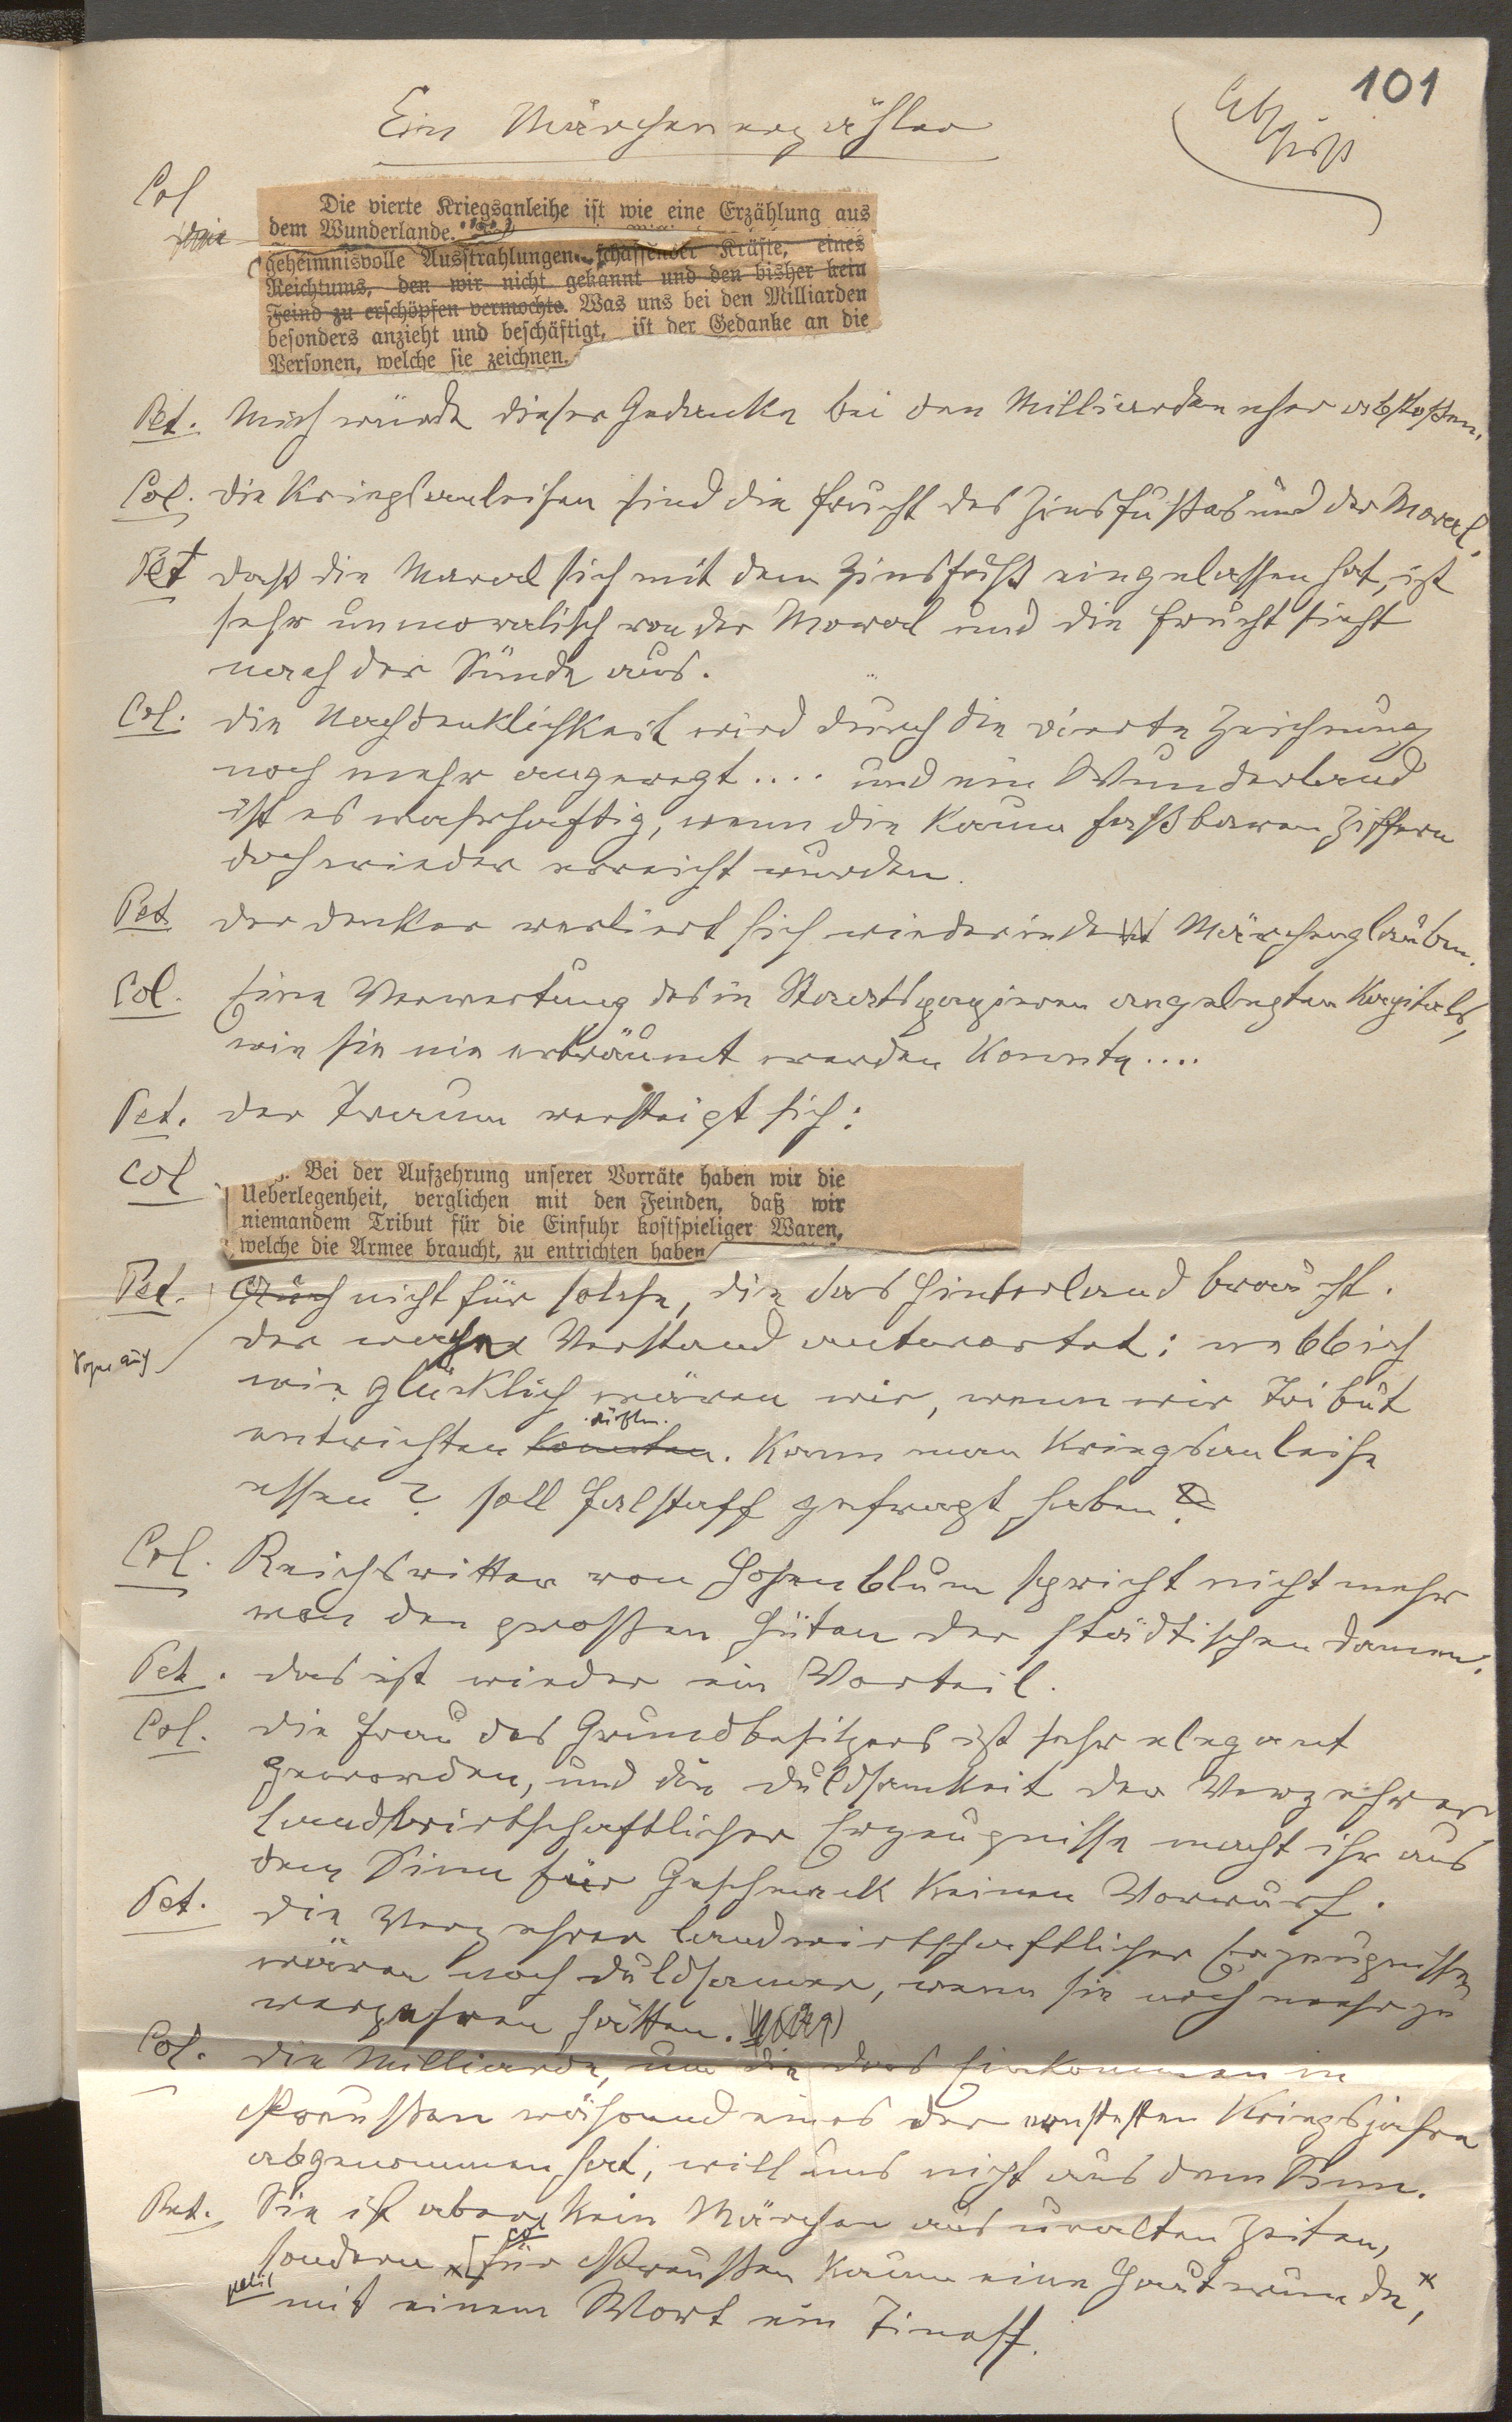 101
Ein Märchenerzähler
Col
Die vierte Kriegsanleihe ist wie eine Erzählung aus
dem Wunderlande. ....
geheimnisvolle Ausstrahlungen schaffender Kräfte, eines
Reichtums, den wir nicht gekannt und den bisher kein
Feind zu erschöpfen vermochte. Was uns bei den Milliarden
besonders anzieht und beschäftigt, ist der Gedanke an die
Personen, welche sie zeichnen.
Pet. Mich würde dieser Gedanke bei den Milliarden eher abstoßen.
Col. Die Kriegsanleihen sind die Frucht des Zinsfußes und der Moral.
Pet Daß die Moral sich mit dem Zinsfuß eingelassen hat, ist
sehr unmoralisch von der Moral und die Frucht sieht
nach der Sünde aus.
Col. Die Nachdenklichkeit wird durch die vierte Zeichnung
noch mehr angeregt .... und ein Wunderland
ist es wahrhaftig, wenn die kaum faßbaren Ziffern
doch wieder erreicht wurden.
Pet Der Denker verliert sich wieder in den Märchenglauben.
Col. Eine Verwertung des in Staatspapieren angelegten Kapitals,
wie sie nie erträumt werden konnte ....
Pet. Der Traum versteigt sich:
Col
Bei der Aufzehrung unserer Vorräte haben wir die
Ueberlegenheit, verglichen mit den Feinden, daß wir
niemandem Tribut für die Einfuhr kostspieliger Waren,
welche die Armee braucht, zu entrichten haben
Pet. Auch nicht für solche, die das Hinterland braucht.
Der wache Verstand antwortet: nebbich
wie glücklich wären wir, wenn wir Tribut
dürften
entrichten konnten. Kann man Kriegsanleihe
essen? soll Falstaff gefragt haben.
Col. Reichsritter von Hohenblum spricht nicht mehr
von den großen Hüten der städtischen Damen.
Pet. Das ist wieder ein Vorteil.
Col. Die Frau des Grundbesitzers ist sehr elegant
geworden, und die Duldsamkeit der Verzehrer
landwirtschaftlicher Erzeugnisse macht ihr aus
dem Sinn für Geschmack keinen Vorwurf.
Pet. Die Verzehrer landwirtschaftlicher Erzeugnisse
wären noch duldsamer, wenn sie noch mehr zu
verzehren hätten.
Col. Die Milliarde, um die das Einkommen in
Preußen während eines der ernstesten Kriegsjahre
abgenommen hat, will uns nicht aus dem Sinn.
Pet. Sie ist aber kein Märchen aus uralten Zeiten,
Col
sondern für Preußen kaum eine Hautwunde,
mit einem Wort ein Zineff.